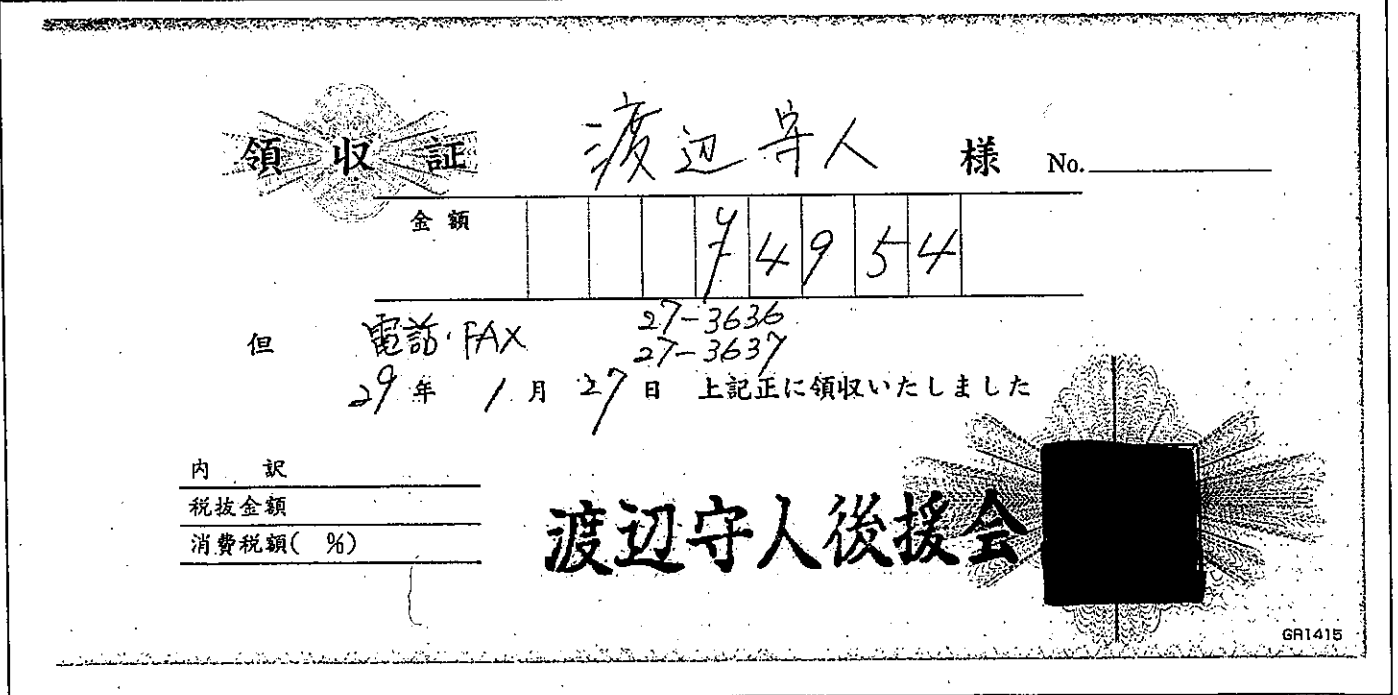 領収証 渡辺守人 様 No.
金額 ¥4954
但 電話・FAX 27-3636
27-3637
29年 1月 27日 上記正に領収いたしました
内訳
税抜金額
消費税額( %)
渡辺守人後援会
GR1415